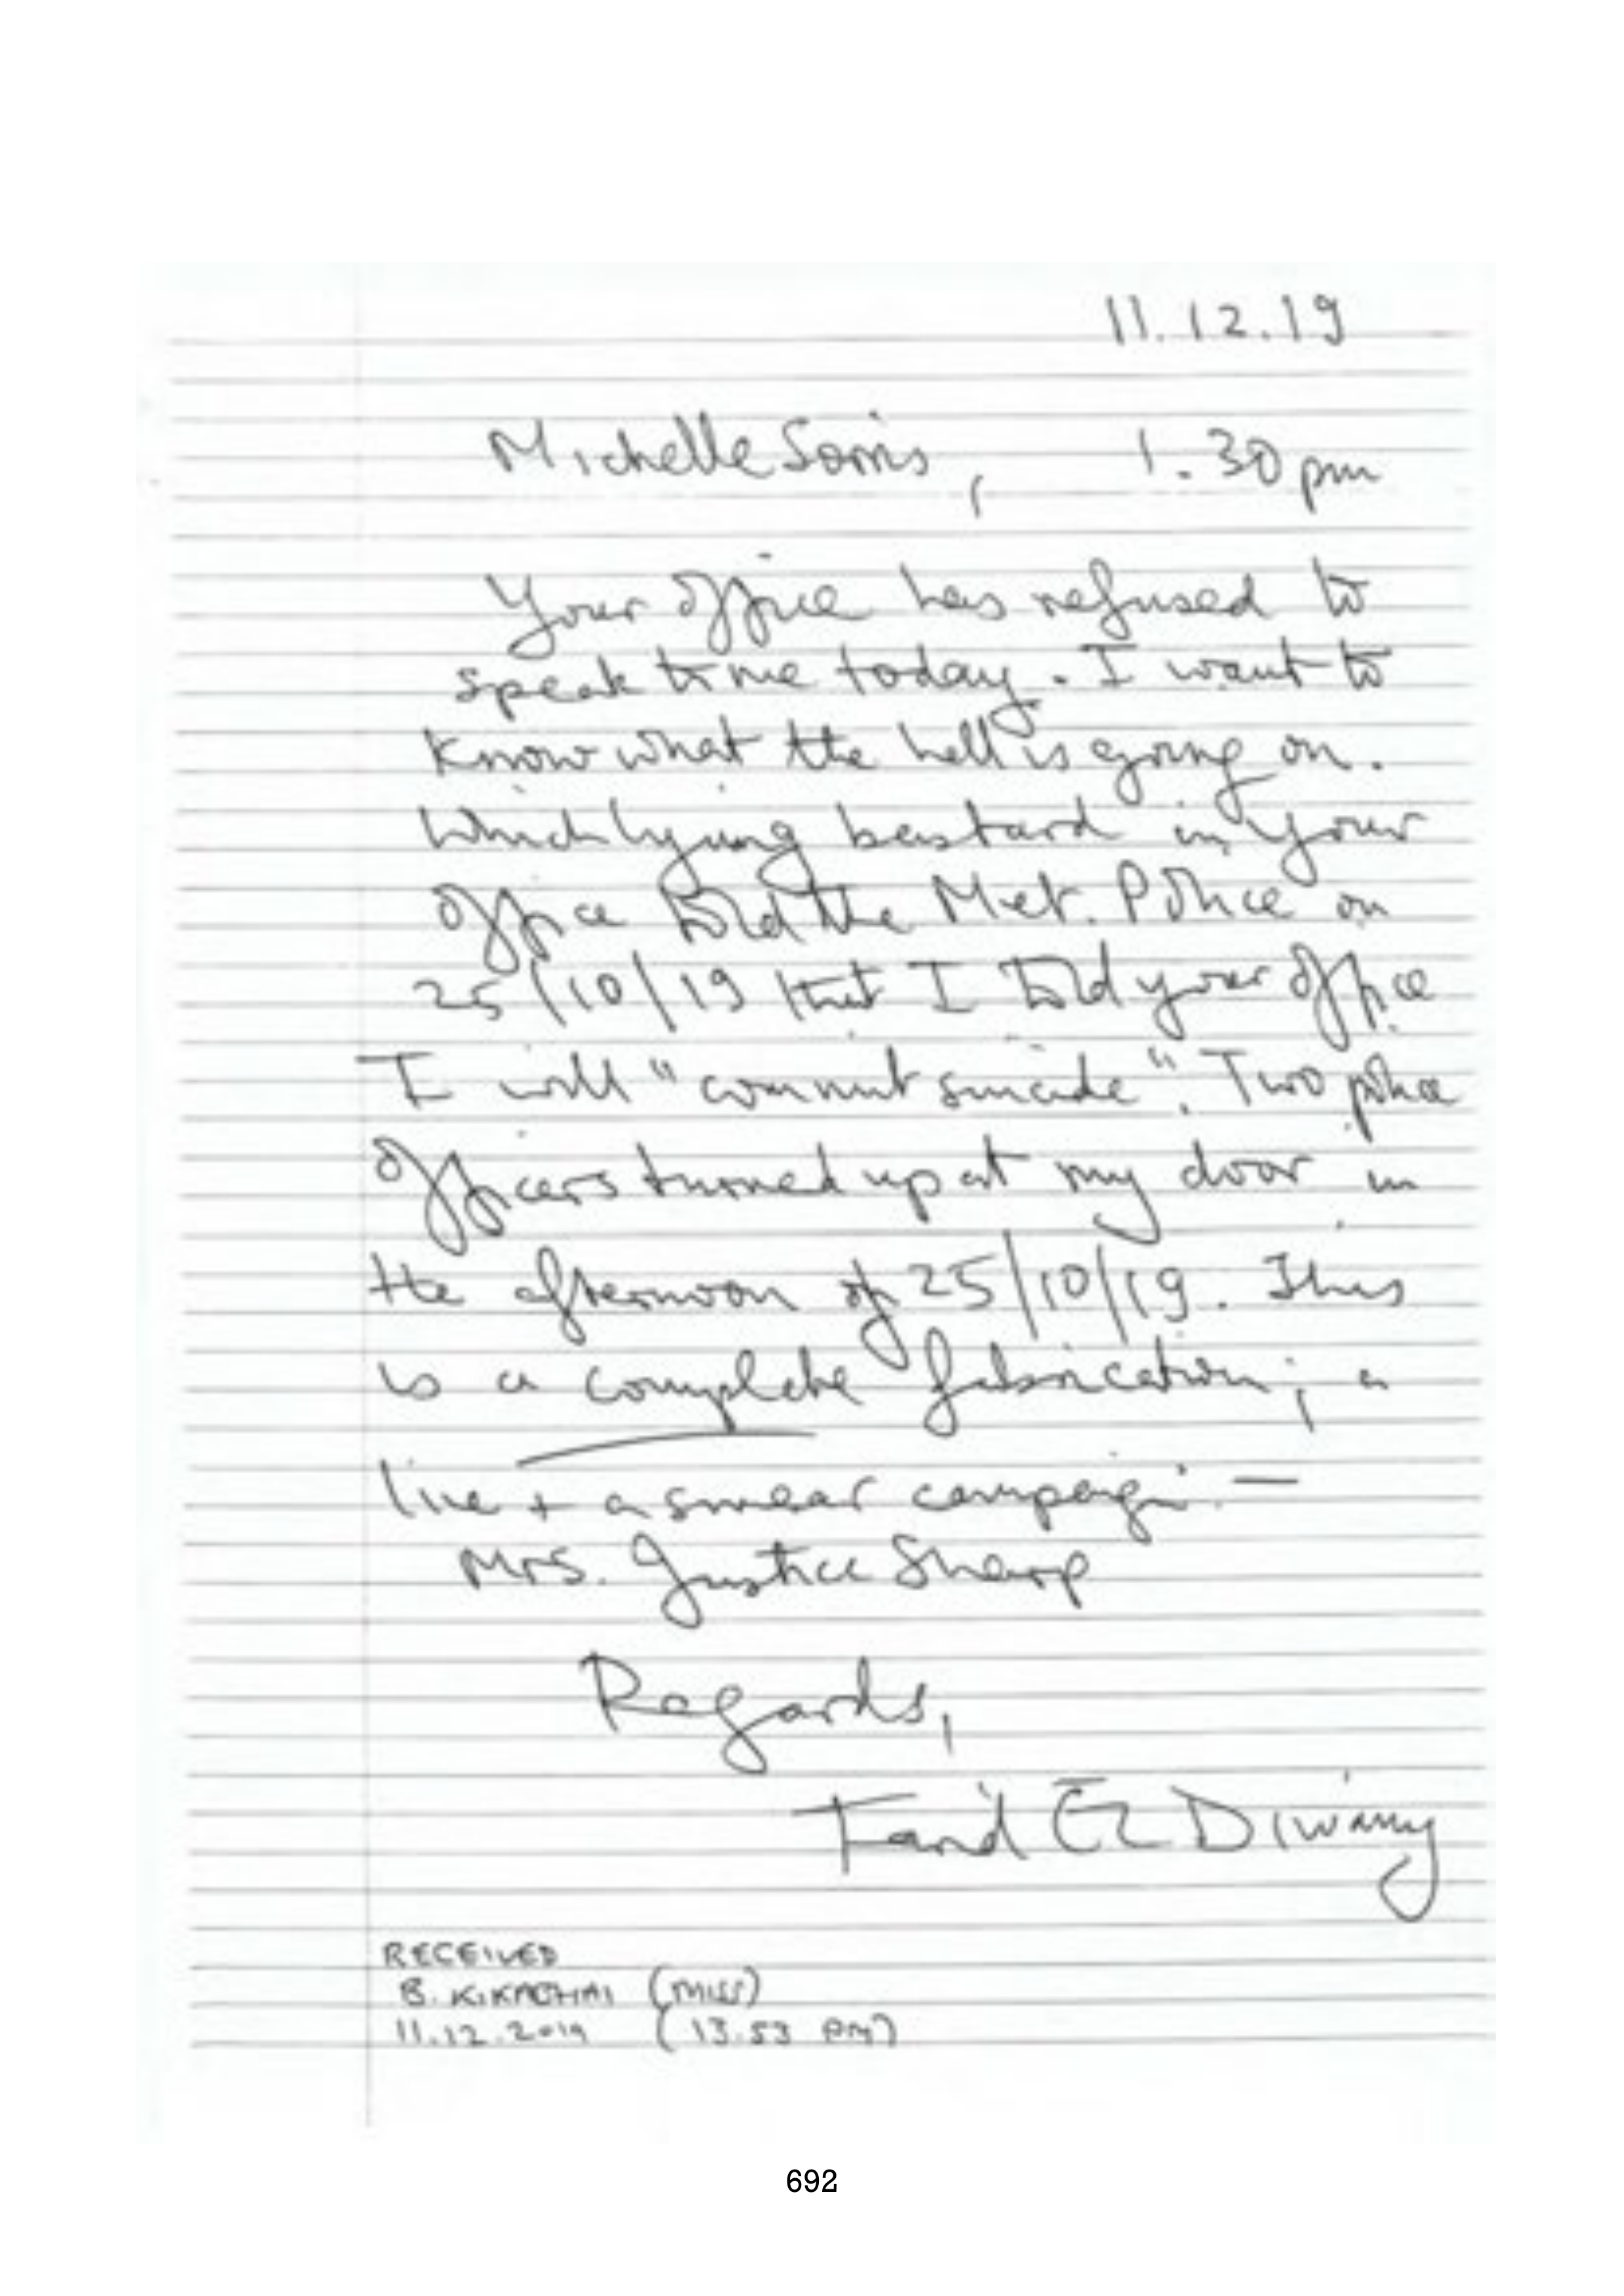 11.12.19
Michelle Soms, 1.30 pm
Your office has refused to
speak to me today. I want to
know what the hell is going on.
Which lying bastard in your
office told the Met. Police on
25/10/19 that I told your office
I will "commit suicide". Two police
officers turned up at my door in
the afternoon of 25/10/19. This
is a complete fabrication; a
lie + a smear campaign. —
Mrs. Justice Sharp
Regards,
Farid El Diwany
RECEIVED
B. (MISS)
11.12.2019 (13.53 PM)
692